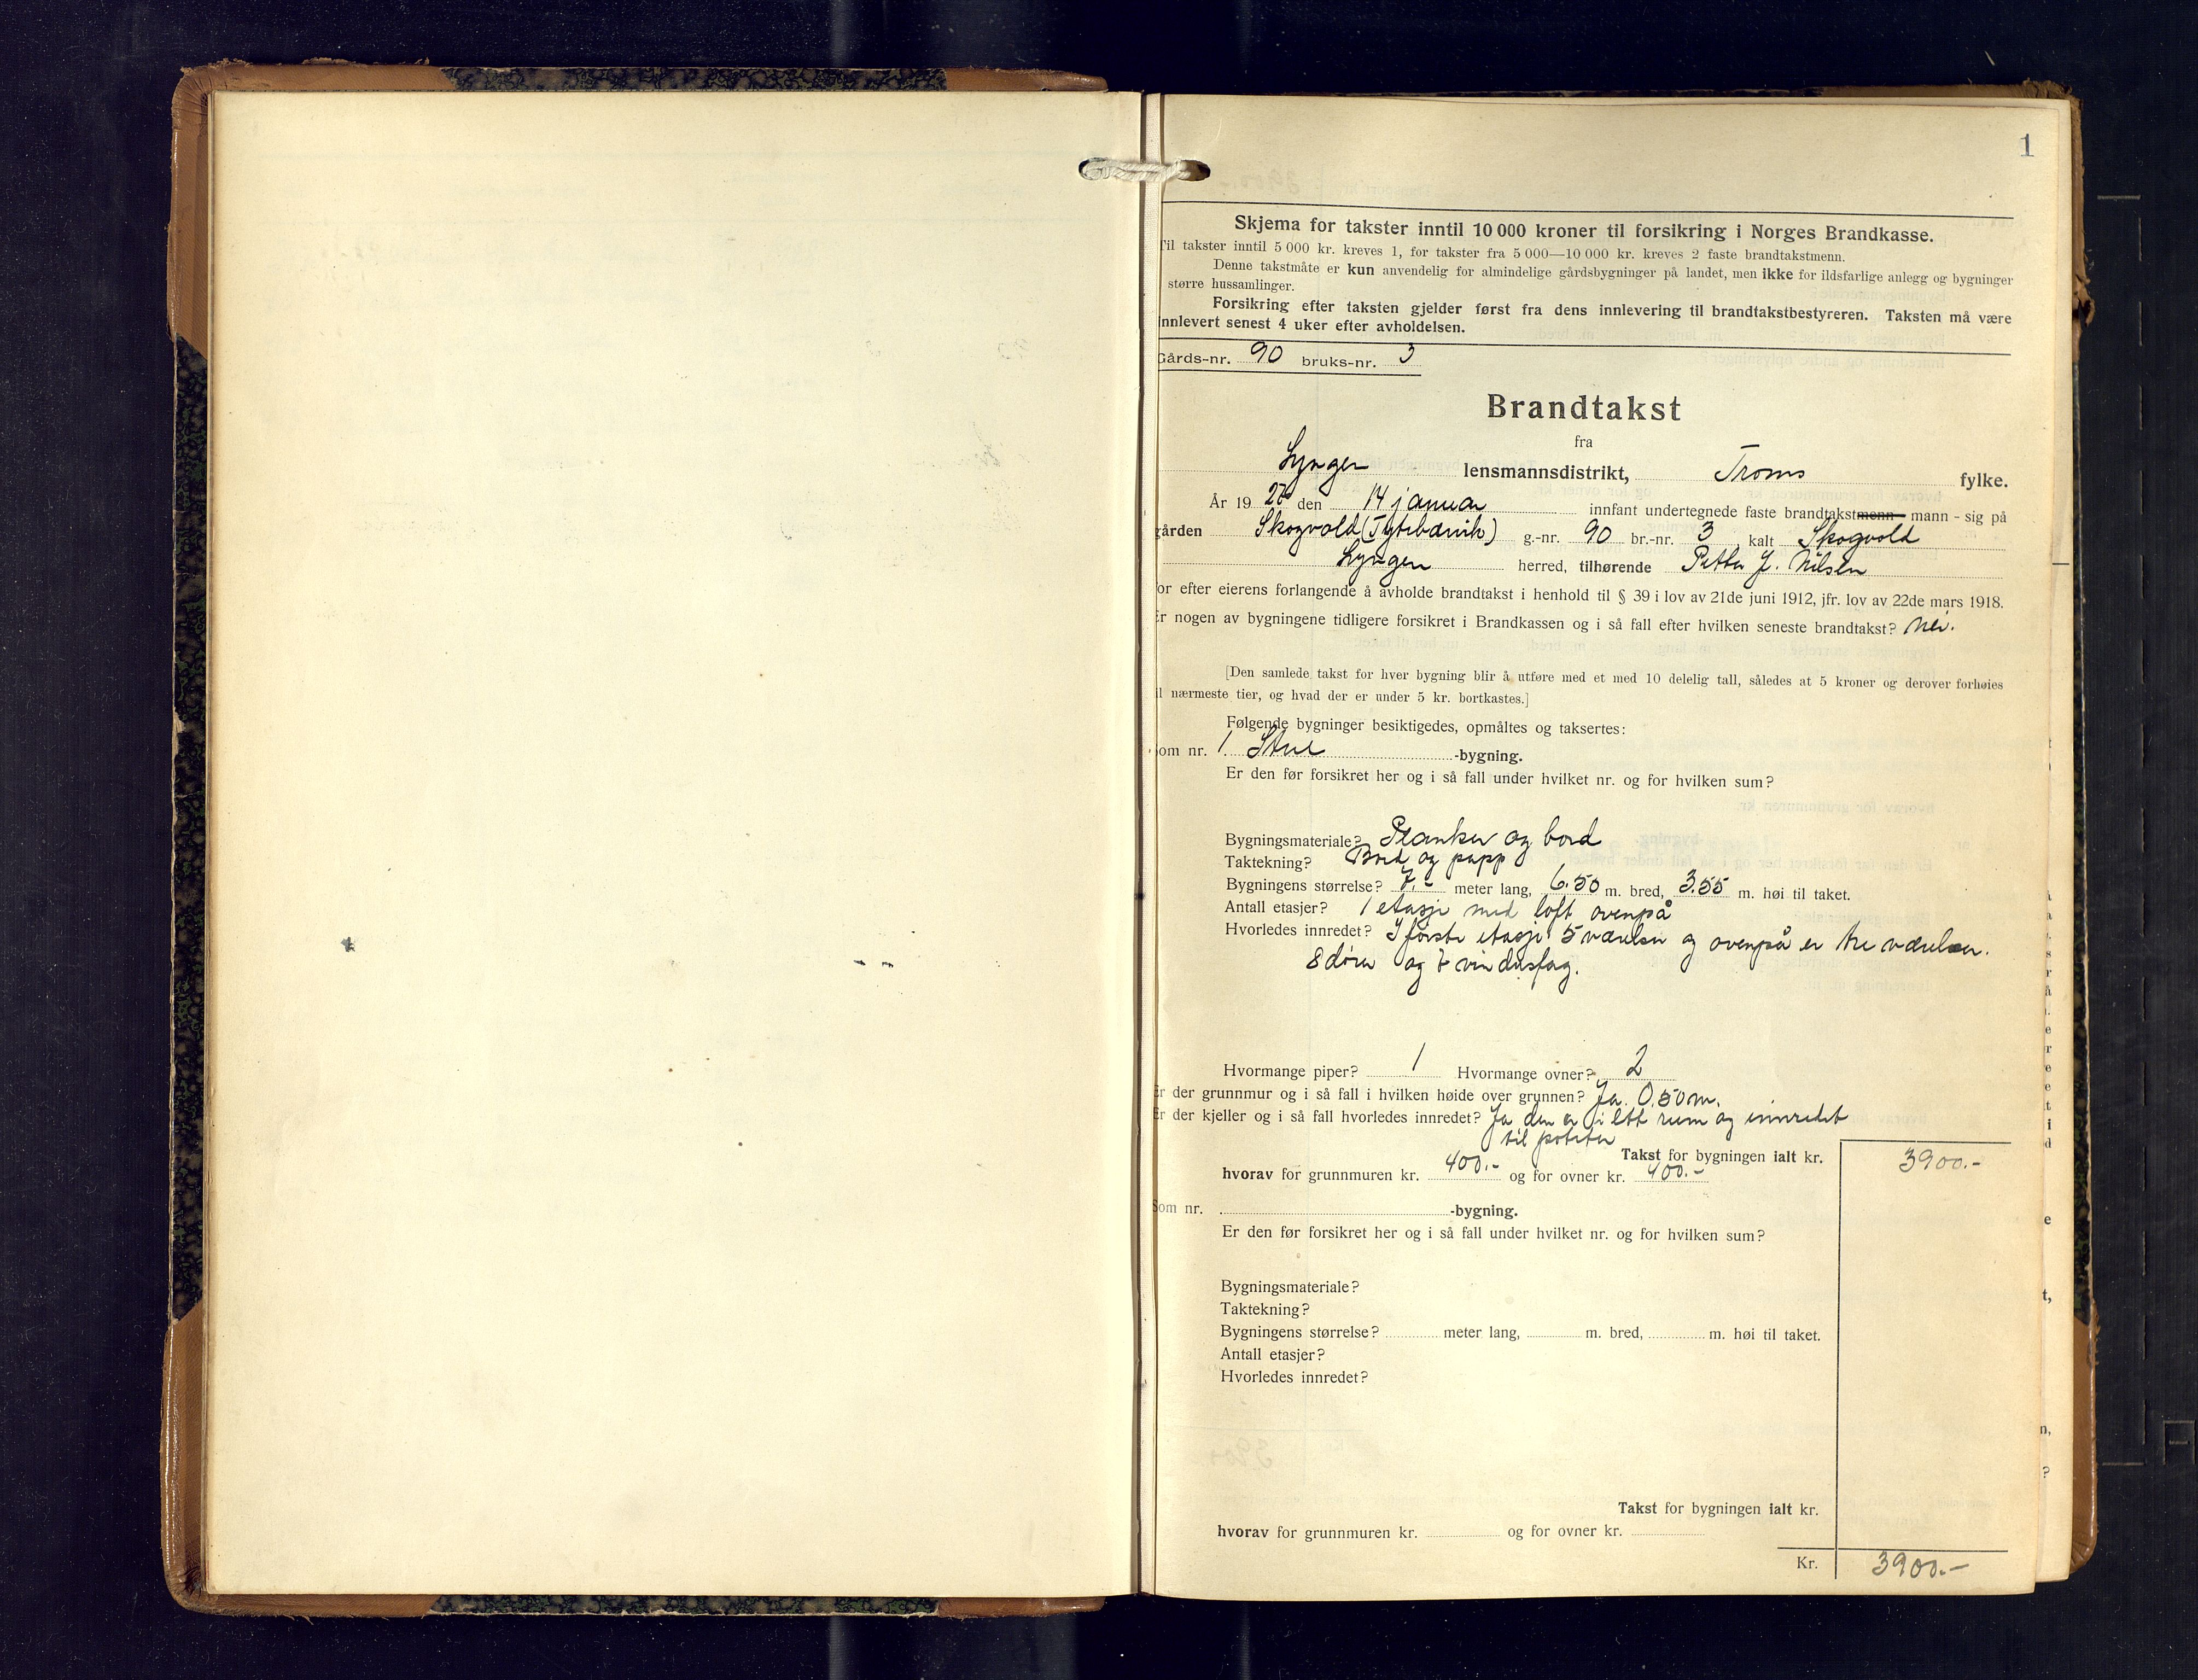 1
Skjema for takster inntil 10 000 kroner til forsikring i Norges Brandkasse.
Til takster inntil 5 000 kr. kreves 1, for takster fra 5 000—10 000 kr. kreves 2 faste brandtakstmenn.
Denne takstmåte er kun anvendelig for almindelige gårdsbygninger på landet, men ikke for ildsfarlige anlegg og bygninger
større hussamlinger.
Forsikring efter taksten gjelder først fra dens innlevering til brandtakstbestyreren. Taksten må være
innlevert senest 4 uker efter avholdelsen.
Gårds-nr. 90 bruks-nr. 3
Brandtakst
fra
Lyngen lensmannsdistrikt, Troms fylke.
År 19 den 14 januar innfant undertegnede faste brandtakstmenn mann - sig på
gården Skogvold (Tytebærvik) g.-nr. 90 br.-nr. 3 kalt Skogvold
Lyngen herred, tilhørende Petter J. Nilsen
for efter eierens forlangende å avholde brandtakst i henhold til § 39 i lov av 21de juni 1912, jfr. lov av 22de mars 1918.
Er nogen av bygningene tidligere forsikret i Brandkassen og i så fall efter hvilken seneste brandtakst? Nei.
[Den samlede takst for hver bygning blir å utføre med et med 10 delelig tall, således at 5 kroner og derover forhøies
til nærmeste tier, og hvad der er under 5 kr. bortkastes.]
Følgende bygninger besiktigedes, opmåltes og taksertes:
Som nr. 1. Stue -bygning.
Er den før forsikret her og i så fall under hvilket nr. og for hvilken sum?
Bygningsmateriale? Planker og bord
Taktekning? Bord og papp
Bygningens størrelse? 7.- meter lang, 6.50 m. bred, 3.55 m. høi til taket.
Antall etasjer? 1 etasje med loft ovenpå
Hvorledes innredet? I første etasje 5 værelser og ovenpå er tre værelser.
8 dører og 7 vindusfag.
Hvormange piper? 1 Hvormange ovner? 2
Er der grunnmur og i så fall i hvilken høide over grunnen? Ja. 0.50 m.
Er der kjeller og i så fall hvorledes innredet? Ja den er i ett rum og innredet
til poteter
Takst for bygningen ialt kr. 3900.-
hvorav for grunnmuren kr. 400.- og for ovner kr. 400.-
Som nr. -bygning.
Er den før forsikret her og i så fall under hvilket nr. og for hvilken sum?
Bygningsmateriale?
Taktekning?
Bygningens størrelse? meter lang, m. bred, m. høi til taket.
Antall etasjer?
Hvorledes innredet?
Takst for bygningen ialt kr.
hvorav for grunnmuren kr. og for ovner kr.
Kr. 3900.-